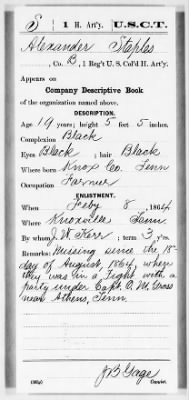 S 1 H. Art'y. U.S.C.T.
Alexander Staples
, Co. B, 1 Reg't U. S. Col'd H. Art'y.
Appears on
Company Descriptive Book
of the organization named above.
DESCRIPTION.
Age 19 years; height 5 feet 5 inches.
Complexion Black
Eyes Black; hair Black
Where born Knox Co. Tenn
Occupation Farmer
ENLISTMENT.
When Feby 8, 1864
Where Knoxville Tenn.
By whom J. W. Kerr; term 3 y'rs.
Remarks: Missing since the 18-
day of August, 1864, when
they was in a Fight with a
party under Capt. O. M. Cross
near Athens, Tenn.
J B Gage
Copyist.